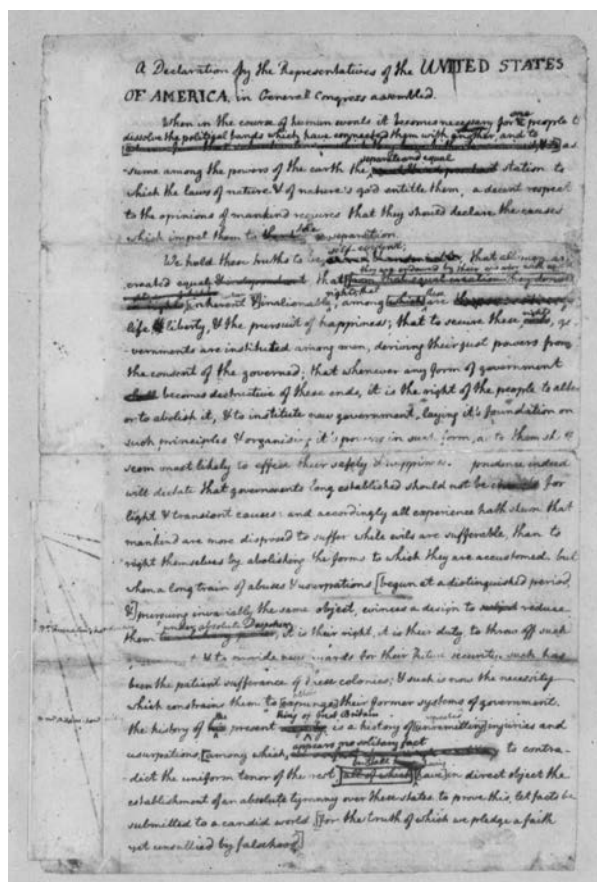 A Declaration by the Representatives of the UNITED STATES
OF AMERICA, in General Congress assembled.
When in the course of human events it becomes necessary for one people to
dissolve the political bands which have connected them with another, and to
as
-sume among the powers of the earth the separate and equal station to
which the laws of nature & of nature's god entitle them, a decent respect
to the opinions of mankind requires that they should declare the causes
which impel them to the separation.
We hold these truths to be self-evident, that all men are
created equal, that they are endowed by their creator with
inherent & inalienable rights; that among these are
life, liberty, & the pursuit of happiness; that to secure these rights, go-
-vernments are instituted among men, deriving their just powers from
the consent of the governed; that whenever any form of government
becomes destructive of these ends, it is the right of the people to alter
or to abolish it, & to institute new government, laying it's foundation on
such principles & organising it's powers in such form, as to them shall
seem most likely to effect their safety & happiness. prudence indeed
will dictate that governments long established should not be for
light & transient causes: and accordingly all experience hath shewn that
mankind are more disposed to suffer while evils are sufferable, than to
right themselves by abolishing the forms to which they are accustomed. but
when a long train of abuses & usurpations [begun at a distinguished period,
&] pursuing invariably the same object, evinces a design to reduce
them under absolute Despotism, it is their right, it is their duty, to throw off such
& to provide new guards for their future security. such has
been the patient sufferance of these colonies; & such is now the necessity
which constrains them to [expunge] their former systems of government.
the history of the present King of Great Britain is a history of [unremitting] injuries and
usurpations, [among which, appears no solitary fact to contra-
-dict the uniform tenor of the rest, but all [have] in direct object the
establishment of an absolute tyranny over these states. to prove this, let facts be
submitted to a candid world, [for the truth of which we pledge a faith
yet unsullied by falsehood]